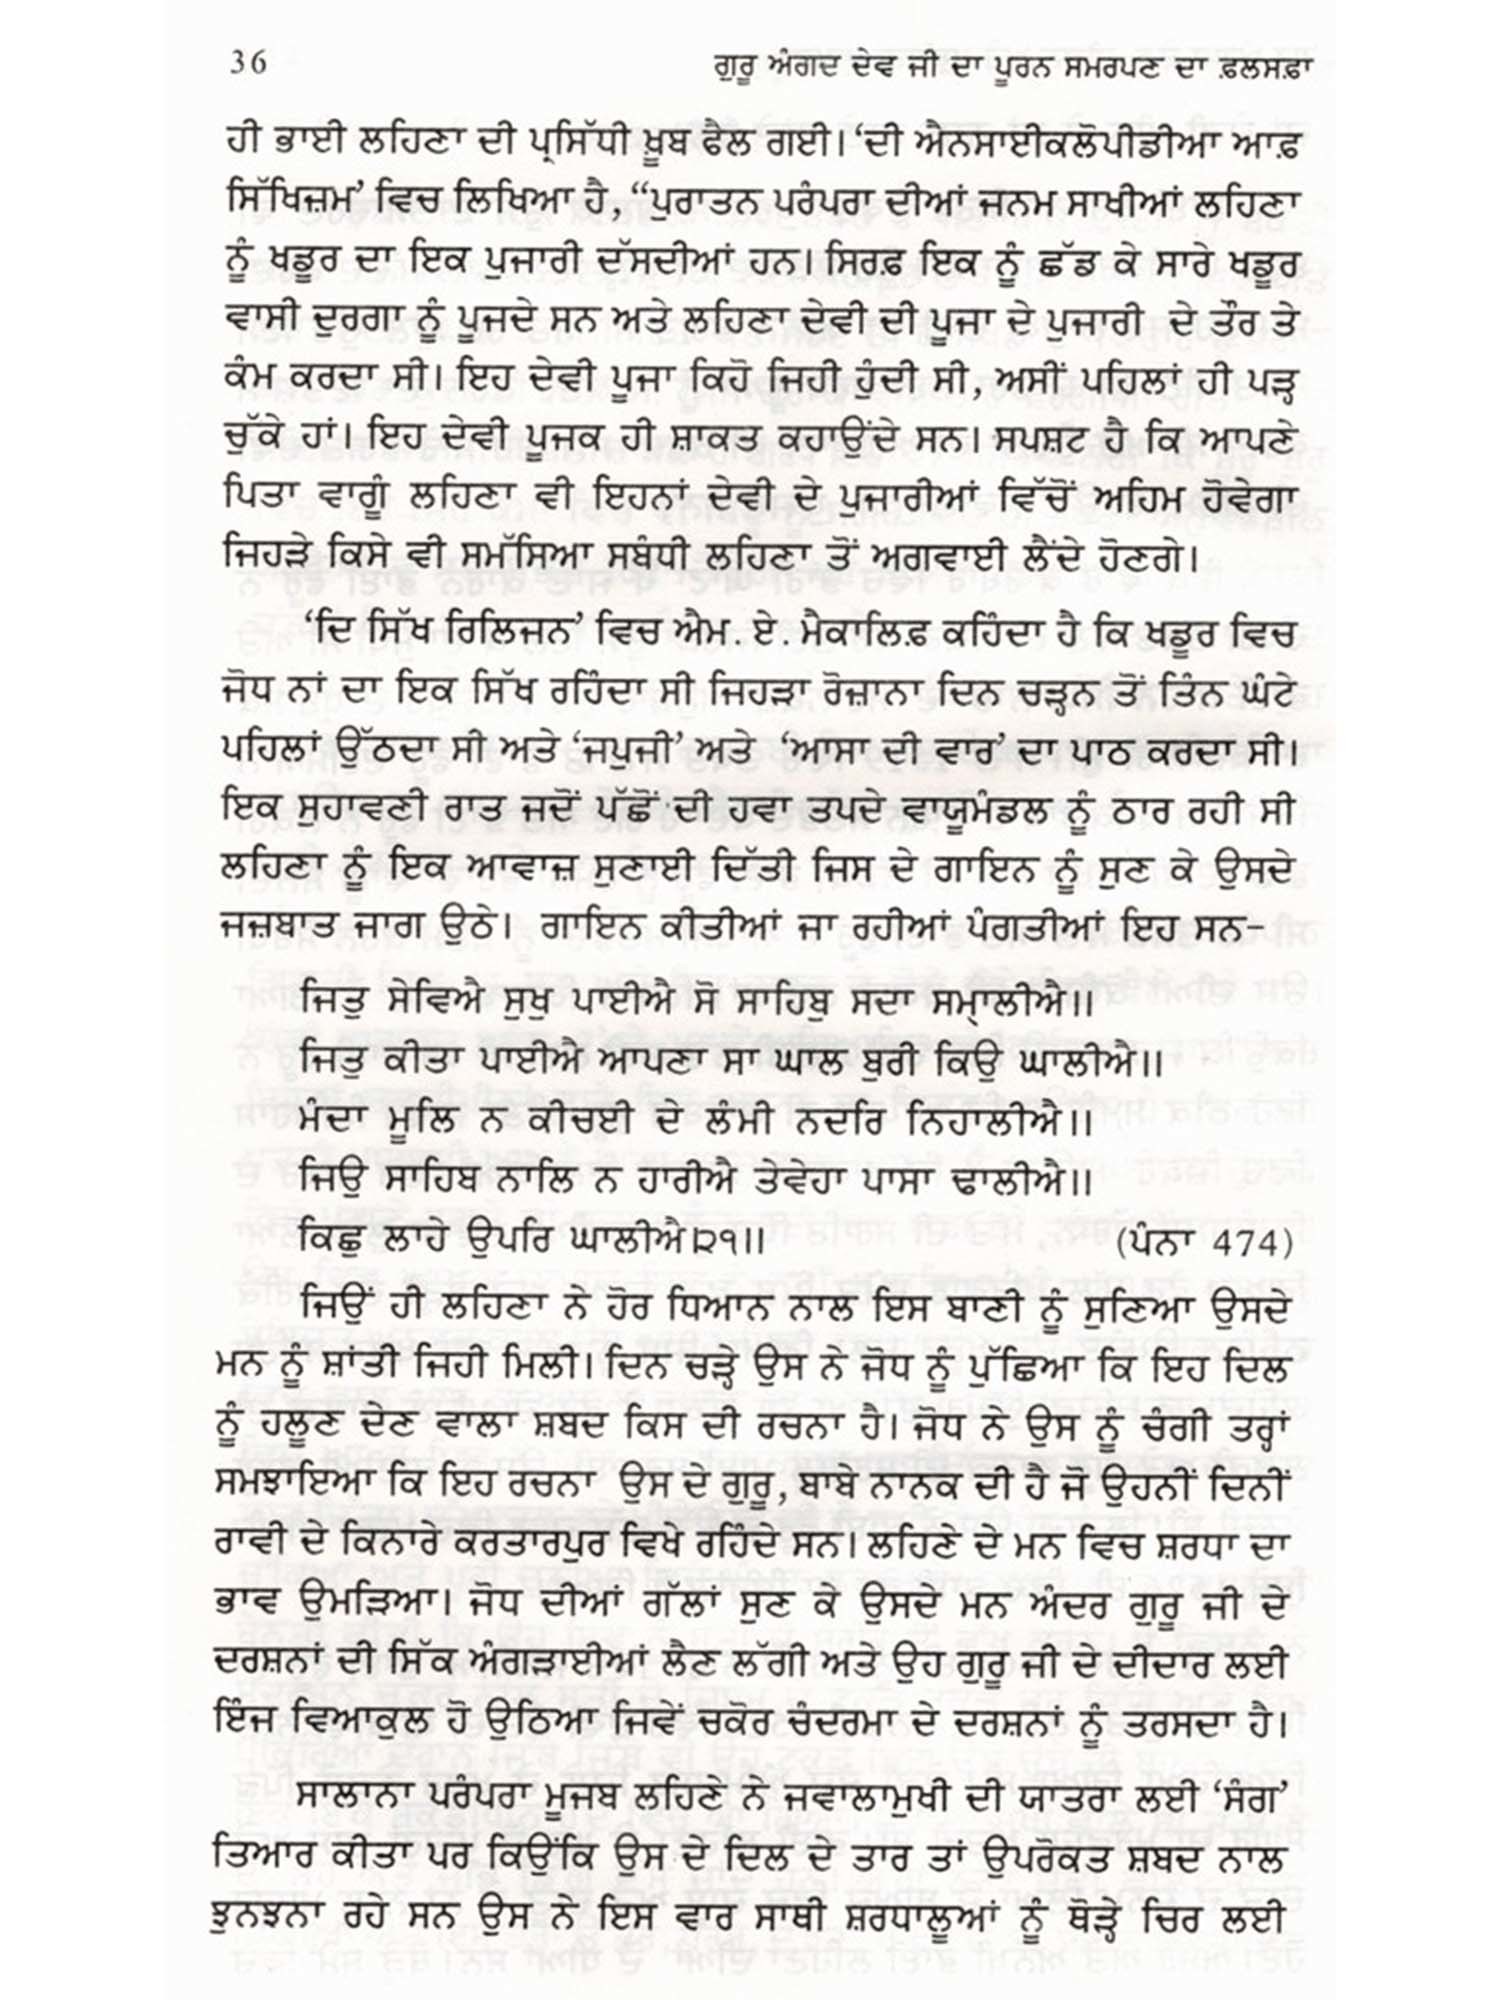 36 ਗੁਰੂ ਅੰਗਦ ਦੇਵ ਜੀ ਦਾ ਪੂਰਨ ਸਮਰਪਣ ਦਾ ਫ਼ਲਸਫ਼ਾ
ਹੀ ਭਾਈ ਲਹਿਣਾ ਦੀ ਪ੍ਰਸਿੱਧੀ ਖ਼ੂਬ ਫੈਲ ਗਈ। ‘ਦੀ ਐਨਸਾਈਕਲੋਪੀਡੀਆ ਆਫ਼
ਸਿੱਖਿਜ਼ਮ’ ਵਿਚ ਲਿਖਿਆ ਹੈ, “ਪੁਰਾਤਨ ਪਰੰਪਰਾ ਦੀਆਂ ਜਨਮ ਸਾਖੀਆਂ ਲਹਿਣਾ
ਨੂੰ ਖਡੂਰ ਦਾ ਇਕ ਪੁਜਾਰੀ ਦੱਸਦੀਆਂ ਹਨ। ਸਿਰਫ਼ ਇਕ ਨੂੰ ਛੱਡ ਕੇ ਸਾਰੇ ਖਡੂਰ
ਵਾਸੀ ਦੁਰਗਾ ਨੂੰ ਪੂਜਦੇ ਸਨ ਅਤੇ ਲਹਿਣਾ ਦੇਵੀ ਦੀ ਪੂਜਾ ਦੇ ਪੁਜਾਰੀ ਦੇ ਤੌਰ ਤੇ
ਕੰਮ ਕਰਦਾ ਸੀ। ਇਹ ਦੇਵੀ ਪੂਜਾ ਕਿਹੋ ਜਿਹੀ ਹੁੰਦੀ ਸੀ, ਅਸੀਂ ਪਹਿਲਾਂ ਹੀ ਪੜ੍ਹ
ਚੁੱਕੇ ਹਾਂ। ਇਹ ਦੇਵੀ ਪੂਜਕ ਹੀ ਸ਼ਾਕਤ ਕਹਾਉਂਦੇ ਸਨ। ਸਪਸ਼ਟ ਹੈ ਕਿ ਆਪਣੇ
ਪਿਤਾ ਵਾਗੂੰ ਲਹਿਣਾ ਵੀ ਇਹਨਾਂ ਦੇਵੀ ਦੇ ਪੁਜਾਰੀਆਂ ਵਿੱਚੋਂ ਅਹਿਮ ਹੋਵੇਗਾ
ਜਿਹੜੇ ਕਿਸੇ ਵੀ ਸਮੱਸਿਆ ਸਬੰਧੀ ਲਹਿਣਾ ਤੋਂ ਅਗਵਾਈ ਲੈਂਦੇ ਹੋਣਗੇ।
‘ਦਿ ਸਿੱਖ ਰਿਲਿਜਨ’ ਵਿਚ ਐਮ. ਏ. ਮੈਕਾਲਿਫ਼ ਕਹਿੰਦਾ ਹੈ ਕਿ ਖਡੂਰ ਵਿਚ
ਜੋਧ ਨਾਂ ਦਾ ਇਕ ਸਿੱਖ ਰਹਿੰਦਾ ਸੀ ਜਿਹੜਾ ਰੋਜ਼ਾਨਾ ਦਿਨ ਚੜ੍ਹਨ ਤੋਂ ਤਿੰਨ ਘੰਟੇ
ਪਹਿਲਾਂ ਉੱਠਦਾ ਸੀ ਅਤੇ ‘ਜਪੁਜੀ’ ਅਤੇ ‘ਆਸਾ ਦੀ ਵਾਰ’ ਦਾ ਪਾਠ ਕਰਦਾ ਸੀ।
ਇਕ ਸੁਹਾਵਣੀ ਰਾਤ ਜਦੋਂ ਪੱਛੋਂ ਦੀ ਹਵਾ ਤਪਦੇ ਵਾਯੂਮੰਡਲ ਨੂੰ ਠਾਰ ਰਹੀ ਸੀ
ਲਹਿਣਾ ਨੂੰ ਇਕ ਆਵਾਜ਼ ਸੁਣਾਈ ਦਿੱਤੀ ਜਿਸ ਦੇ ਗਾਇਨ ਨੂੰ ਸੁਣ ਕੇ ਉਸਦੇ
ਜਜ਼ਬਾਤ ਜਾਗ ਉਠੇ। ਗਾਇਨ ਕੀਤੀਆਂ ਜਾ ਰਹੀਆਂ ਪੰਗਤੀਆਂ ਇਹ ਸਨ-
ਜਿਤੁ ਸੇਵਿਐ ਸੁਖੁ ਪਾਈਐ ਸੋ ਸਾਹਿਬੁ ਸਦਾ ਸਮ੍ਹਾਲੀਐ॥
ਜਿਤੁ ਕੀਤਾ ਪਾਈਐ ਆਪਣਾ ਸਾ ਘਾਲ ਬੁਰੀ ਕਿਉ ਘਾਲੀਐ॥
ਮੰਦਾ ਮੂਲਿ ਨ ਕੀਚਈ ਦੇ ਲੰਮੀ ਨਦਰਿ ਨਿਹਾਲੀਐ॥
ਜਿਉ ਸਾਹਿਬ ਨਾਲਿ ਨ ਹਾਰੀਐ ਤੇਵੇਹਾ ਪਾਸਾ ਢਾਲੀਐ॥
ਕਿਛੁ ਲਾਹੇ ਉਪਰਿ ਘਾਲੀਐ।੨੧॥ (ਪੰਨਾ 474)
ਜਿਉਂ ਹੀ ਲਹਿਣਾ ਨੇ ਹੋਰ ਧਿਆਨ ਨਾਲ ਇਸ ਬਾਣੀ ਨੂੰ ਸੁਣਿਆ ਉਸਦੇ
ਮਨ ਨੂੰ ਸ਼ਾਂਤੀ ਜਿਹੀ ਮਿਲੀ। ਦਿਨ ਚੜ੍ਹੇ ਉਸ ਨੇ ਜੋਧ ਨੂੰ ਪੁੱਛਿਆ ਕਿ ਇਹ ਦਿਲ
ਨੂੰ ਹਲੂਣ ਦੇਣ ਵਾਲਾ ਸ਼ਬਦ ਕਿਸ ਦੀ ਰਚਨਾ ਹੈ। ਜੋਧ ਨੇ ਉਸ ਨੂੰ ਚੰਗੀ ਤਰ੍ਹਾਂ
ਸਮਝਾਇਆ ਕਿ ਇਹ ਰਚਨਾ ਉਸ ਦੇ ਗੁਰੂ, ਬਾਬੇ ਨਾਨਕ ਦੀ ਹੈ ਜੋ ਉਹਨੀਂ ਦਿਨੀਂ
ਰਾਵੀ ਦੇ ਕਿਨਾਰੇ ਕਰਤਾਰਪੁਰ ਵਿਖੇ ਰਹਿੰਦੇ ਸਨ। ਲਹਿਣੇ ਦੇ ਮਨ ਵਿਚ ਸ਼ਰਧਾ ਦਾ
ਭਾਵ ਉਮੜਿਆ। ਜੋਧ ਦੀਆਂ ਗੱਲਾਂ ਸੁਣ ਕੇ ਉਸਦੇ ਮਨ ਅੰਦਰ ਗੁਰੂ ਜੀ ਦੇ
ਦਰਸ਼ਨਾਂ ਦੀ ਸਿੱਕ ਅੰਗੜਾਈਆਂ ਲੈਣ ਲੱਗੀ ਅਤੇ ਉਹ ਗੁਰੂ ਜੀ ਦੇ ਦੀਦਾਰ ਲਈ
ਇੰਜ ਵਿਆਕੁਲ ਹੋ ਉਠਿਆ ਜਿਵੇਂ ਚਕੋਰ ਚੰਦਰਮਾ ਦੇ ਦਰਸ਼ਨਾਂ ਨੂੰ ਤਰਸਦਾ ਹੈ।
ਸਾਲਾਨਾ ਪਰੰਪਰਾ ਮੂਜਬ ਲਹਿਣੇ ਨੇ ਜਵਾਲਾਮੁਖੀ ਦੀ ਯਾਤਰਾ ਲਈ ‘ਸੰਗ’
ਤਿਆਰ ਕੀਤਾ ਪਰ ਕਿਉਂਕਿ ਉਸ ਦੇ ਦਿਲ ਦੇ ਤਾਰ ਤਾਂ ਉਪਰੋਕਤ ਸ਼ਬਦ ਨਾਲ
ਝੁਨਝਨਾ ਰਹੇ ਸਨ ਉਸ ਨੇ ਇਸ ਵਾਰ ਸਾਥੀ ਸ਼ਰਧਾਲੂਆਂ ਨੂੰ ਥੋੜ੍ਹੇ ਚਿਰ ਲਈ